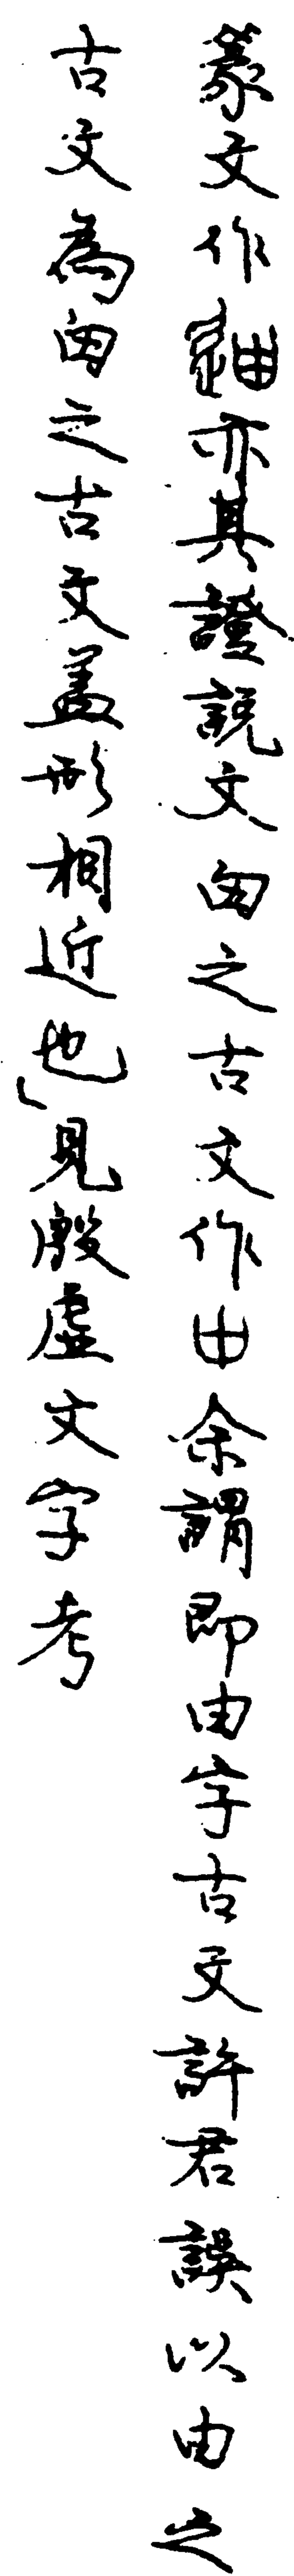 篆文作亦其證說文之古文作余謂即由字古文許君誤以由之
古文為之古文蓋形相近也」見殷虛文字考